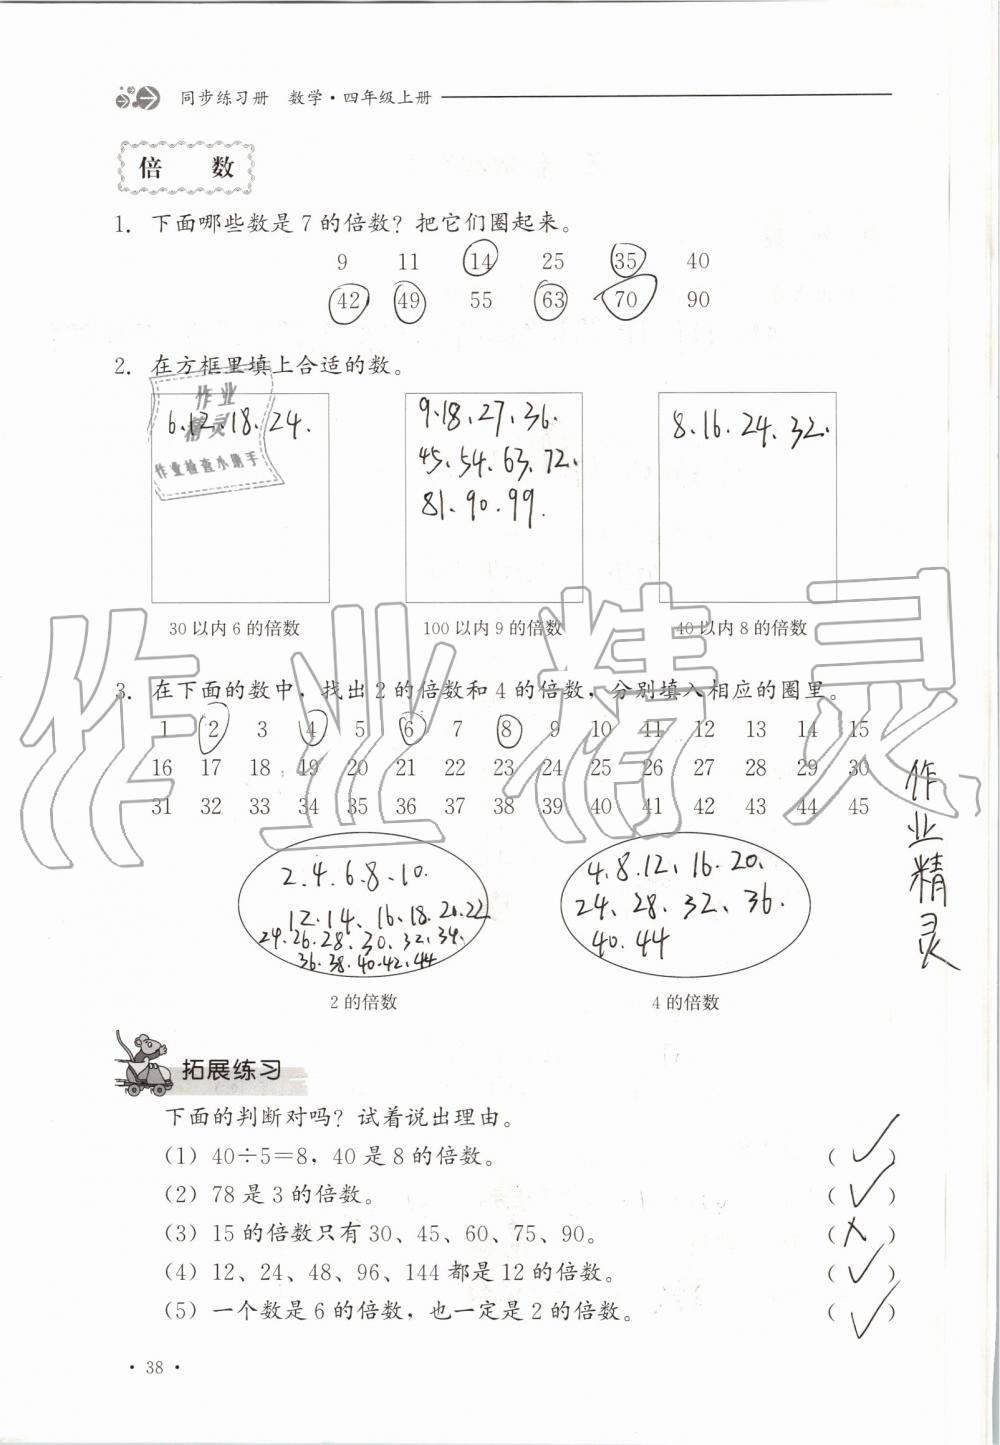 同步练习册 数学·四年级上册
倍 数
1. 下面哪些数是 7 的倍数？把它们圈起来。
9 11 14 25 35 40
42 49 55 63 70 90
2. 在方框里填上合适的数。
作业
精灵
作业检查小助手
6、12、18、24.
9、18、27、36、
45、54、63、72、
81、90、99.
8、16、24、32.
30 以内 6 的倍数 100 以内 9 的倍数 40 以内 8 的倍数
3. 在下面的数中，找出 2 的倍数和 4 的倍数，分别填入相应的圈里。
1 2 3 4 5 6 7 8 9 10 11 12 13 14 15
16 17 18 19 20 21 22 23 24 25 26 27 28 29 30
31 32 33 34 35 36 37 38 39 40 41 42 43 44 45
2、4、6、8、10.
12、14、16、18、20、22
24、26、28、30、32、34、
36、38、40、42、44
4、8、12、16、20、
24、28、32、36、
40、44
2 的倍数 4 的倍数
作业精灵
作业精灵
拓展练习
下面的判断对吗？试着说出理由。
（1）40÷5=8，40 是 8 的倍数。 （ ✓ ）
（2）78 是 3 的倍数。 （ ✓ ）
（3）15 的倍数只有 30、45、60、75、90。 （ × ）
（4）12、24、48、96、144 都是 12 的倍数。 （ ✓ ）
（5）一个数是 6 的倍数，也一定是 2 的倍数。 （ ✓ ）
· 38 ·